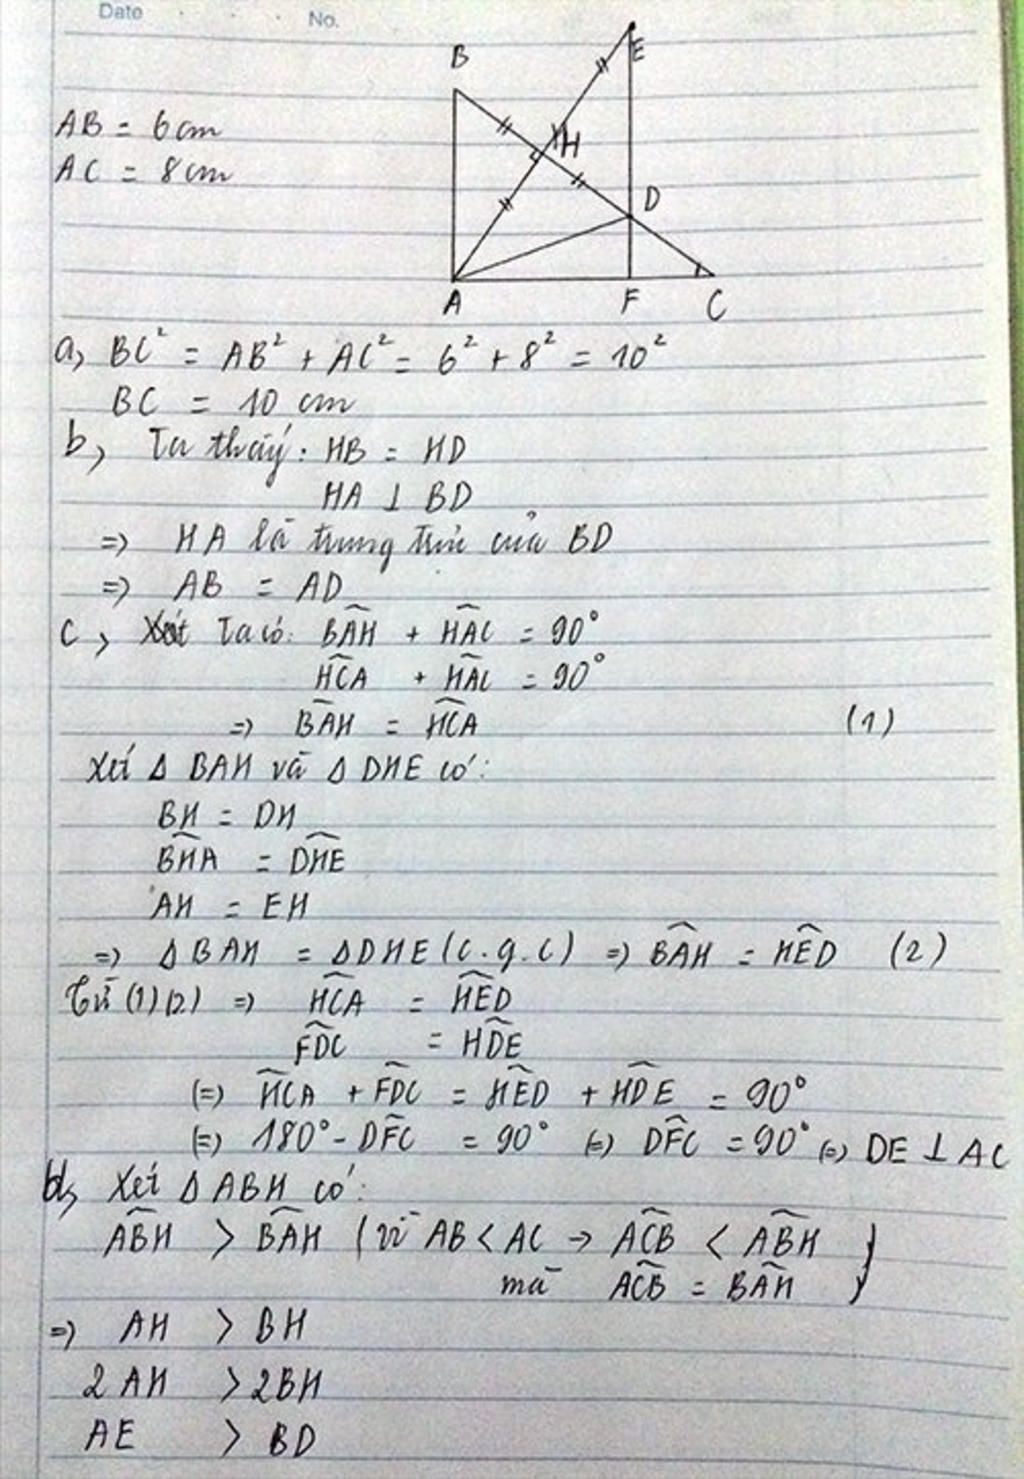 Date No.
E
B
AB = 6cm
H
AC = 8cm
D
A F C
a, BC² = AB² + AC² = 6² + 8² = 10²
BC = 10 cm
b, Ta thấy: HB = HD
HA ⊥ BD
=> HA là trung trực của BD
=> AB = AD
c, Ta có: \widehat{BAH} + \widehat{HAC} = 90°
\widehat{HCA} + \widehat{HAC} = 90°
=> \widehat{BAH} = \widehat{HCA} (1)
Xét Δ BAH và Δ DHE có:
BH = DH
\widehat{BHA} = \widehat{DHE}
AH = EH
=> Δ BAH = Δ DHE (c.g.c) => \widehat{BAH} = \widehat{HED} (2)
Từ (1)(2) => \widehat{HCA} = \widehat{HED}
\widehat{FDC} = \widehat{HDE}
(=) \widehat{HCA} + \widehat{FDC} = \widehat{HED} + \widehat{HDE} = 90°
(=) 180° - \widehat{DFC} = 90° (=) \widehat{DFC} = 90° (=) DE ⊥ AC
d, Xét Δ ABH có:
\widehat{ABH} > \widehat{BAH} (vì AB < AC → \widehat{ACB} < \widehat{ABH}
mà \widehat{ACB} = \widehat{BAH})
=> AH > BH
2AH > 2BH
AE > BD